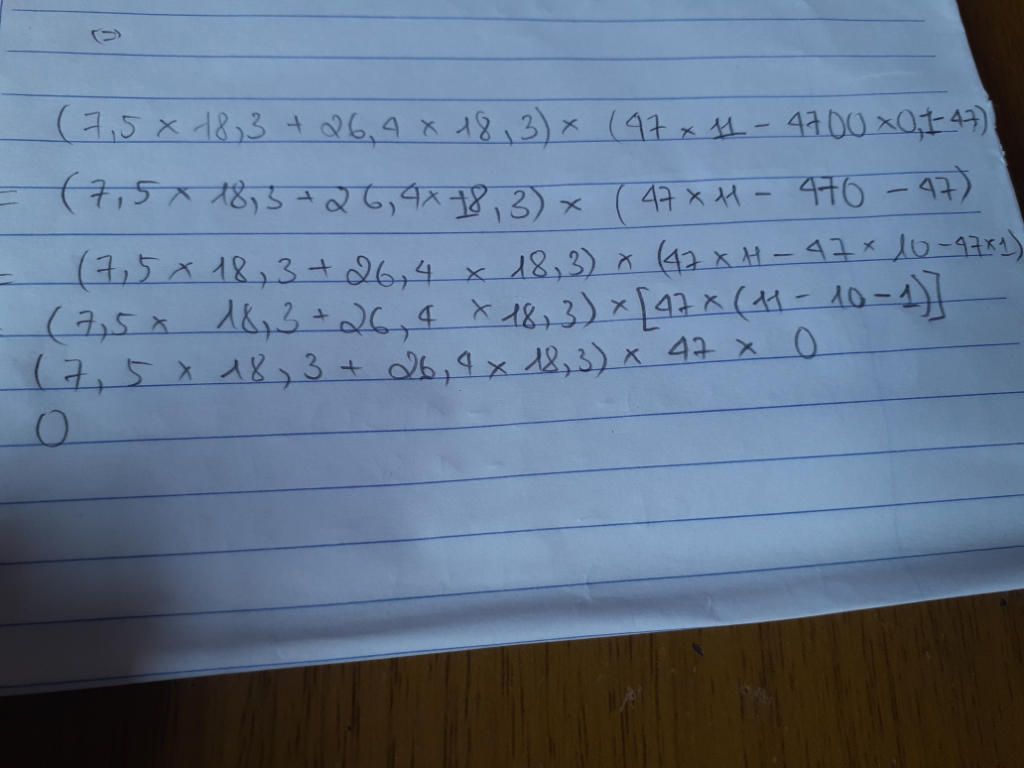 (=)
(7,5 × 18,3 + 26,4 × 18,3) × (47 × 11 - 4700 × 0,1 - 47)
= (7,5 × 18,3 + 26,4 × 18,3) × (47 × 11 - 470 - 47)
= (7,5 × 18,3 + 26,4 × 18,3) × (47 × 11 - 47 × 10 - 47 × 1)
(7,5 × 18,3 + 26,4 × 18,3) × [47 × (11 - 10 - 1)]
(7,5 × 18,3 + 26,4 × 18,3) × 47 × 0
0